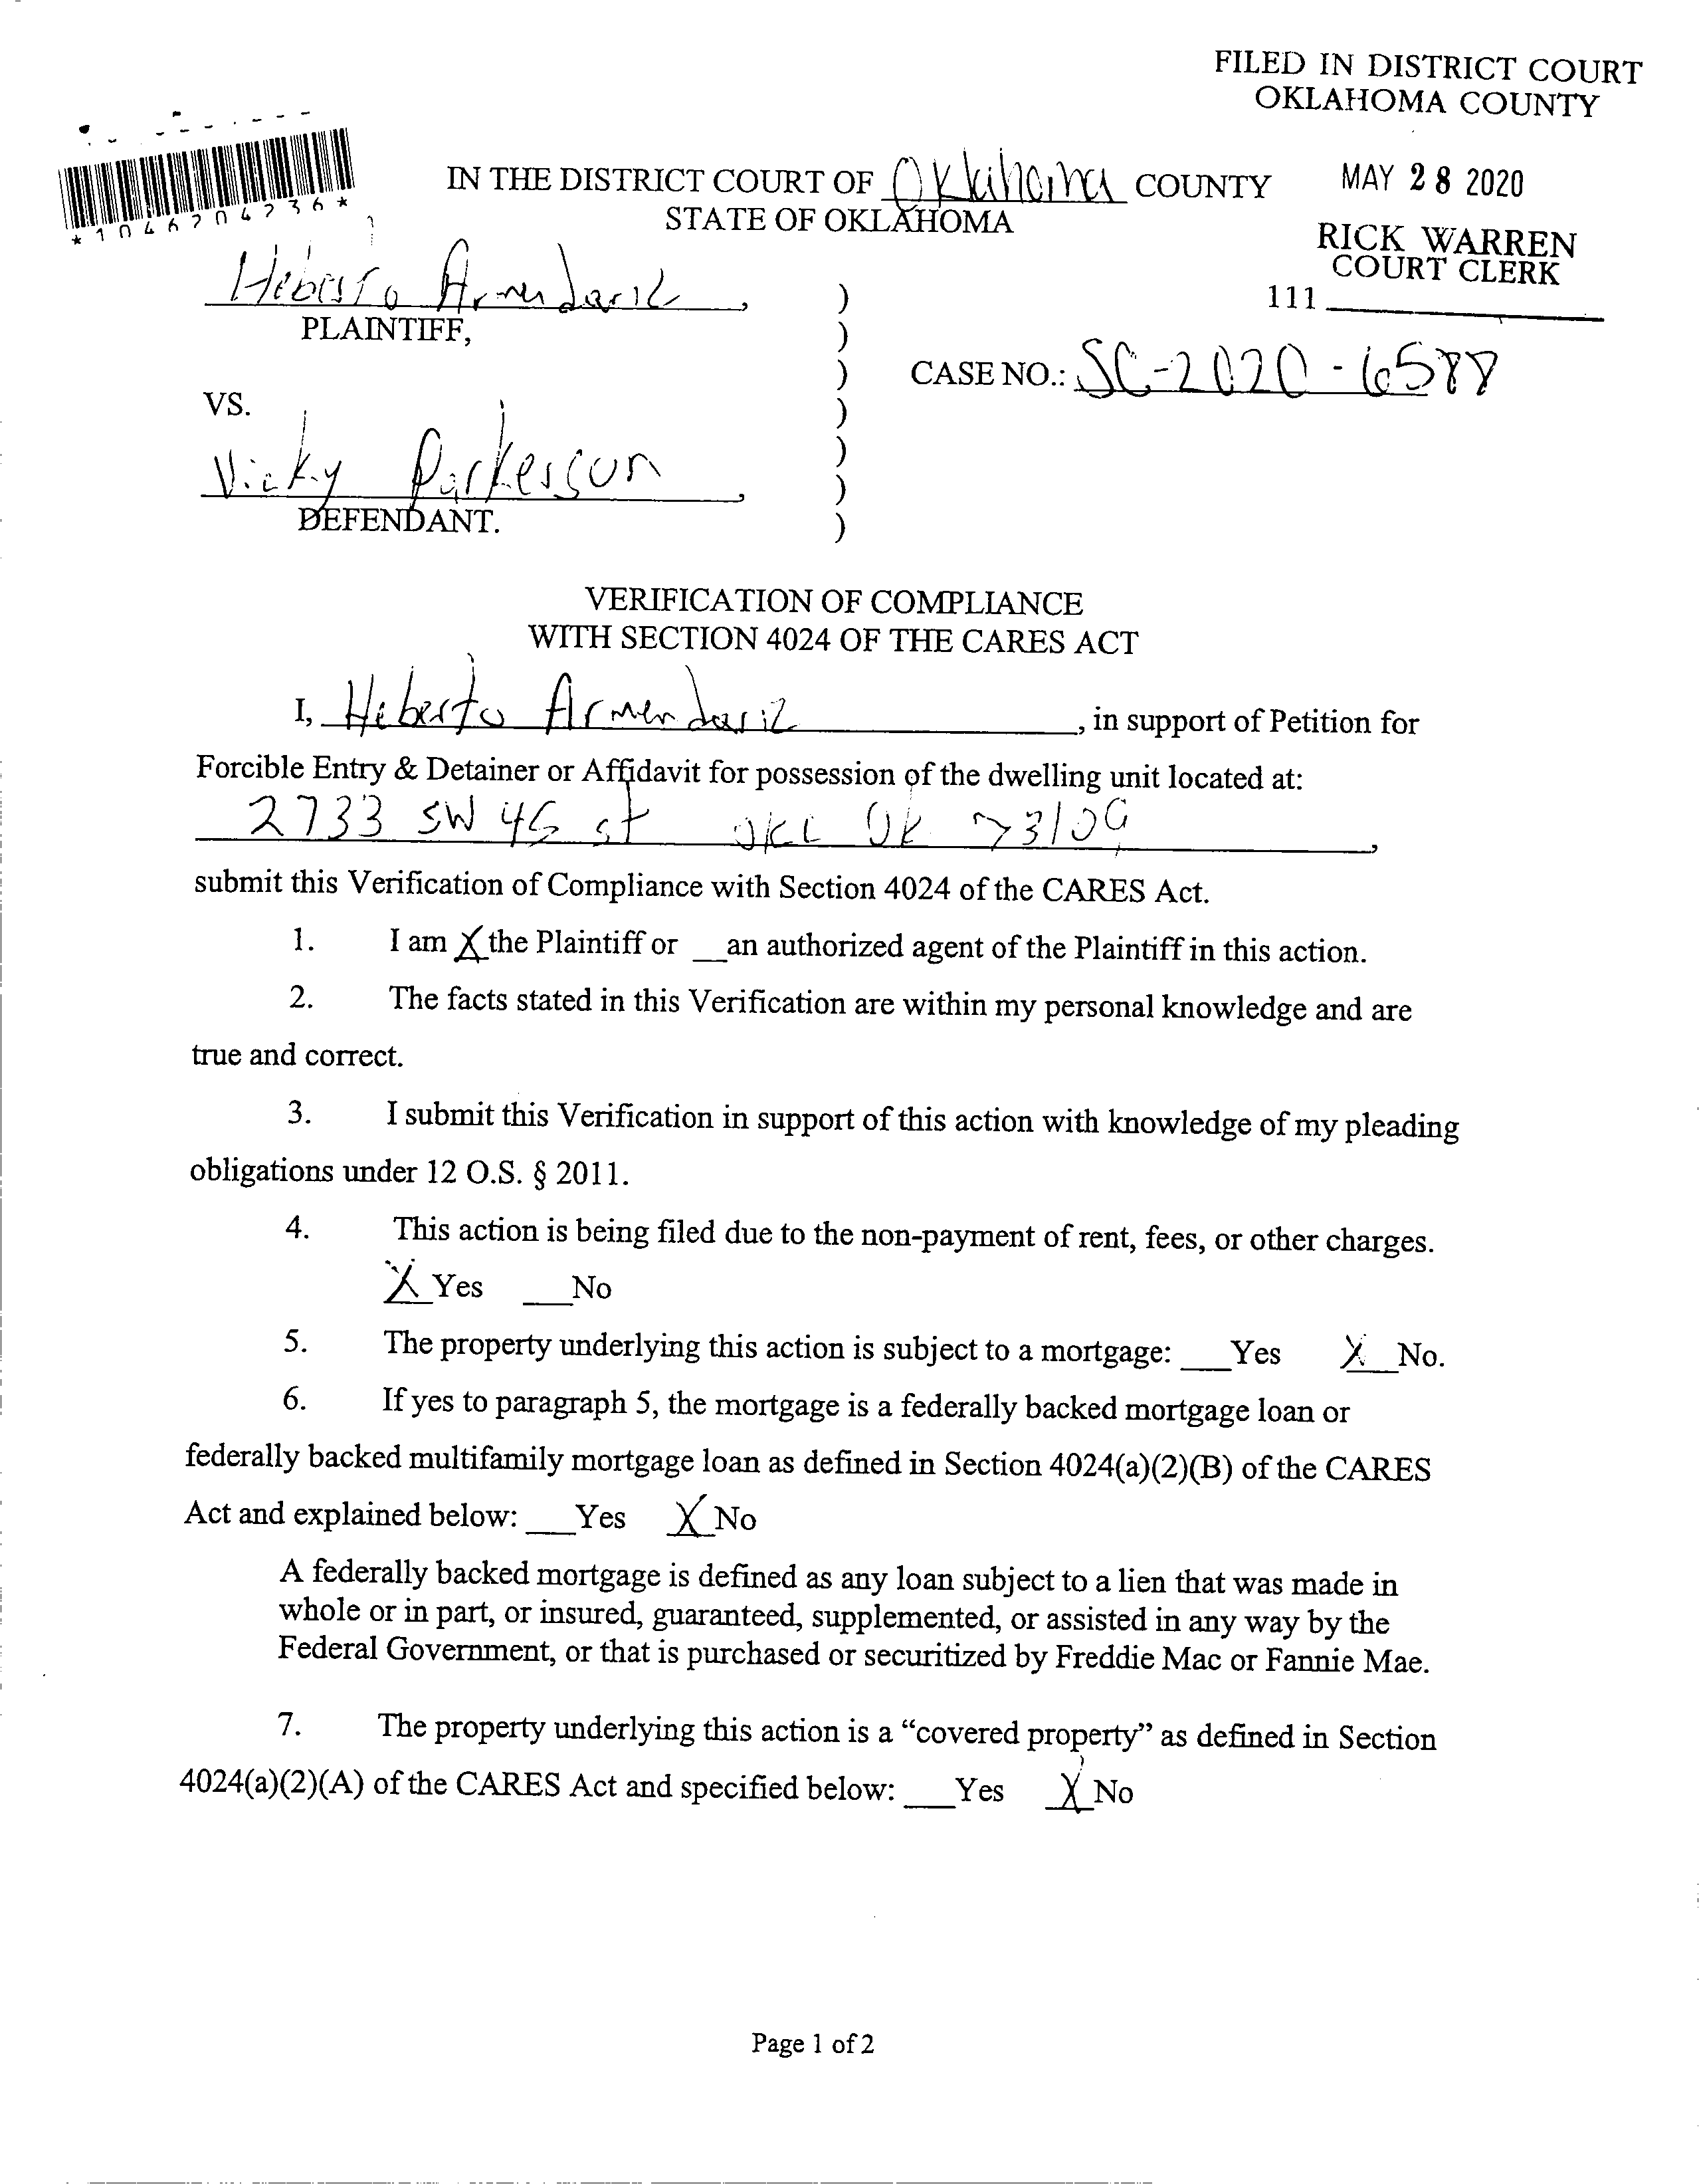 FILED IN DISTRICT COURT
OKLAHOMA COUNTY
MAY 28 2020
RICK WARREN
COURT CLERK
111
*1046704736*
IN THE DISTRICT COURT OF Oklahoma COUNTY
STATE OF OKLAHOMA
Heberto Armendariz,
PLAINTIFF,
VS.
Vicky Parkerson,
DEFENDANT.
)
)
)
)
)
)
)
CASE NO.: SC-2020-6588
VERIFICATION OF COMPLIANCE
WITH SECTION 4024 OF THE CARES ACT
I, Heberto Armendariz, in support of Petition for
Forcible Entry & Detainer or Affidavit for possession of the dwelling unit located at:
2733 SW 45 st OKC OK 73109,
submit this Verification of Compliance with Section 4024 of the CARES Act.
1. I am X the Plaintiff or __an authorized agent of the Plaintiff in this action.
2. The facts stated in this Verification are within my personal knowledge and are
true and correct.
3. I submit this Verification in support of this action with knowledge of my pleading
obligations under 12 O.S. § 2011.
4. This action is being filed due to the non-payment of rent, fees, or other charges.
X Yes ___No
5. The property underlying this action is subject to a mortgage: ___Yes X No.
6. If yes to paragraph 5, the mortgage is a federally backed mortgage loan or
federally backed multifamily mortgage loan as defined in Section 4024(a)(2)(B) of the CARES
Act and explained below: ___Yes X No
A federally backed mortgage is defined as any loan subject to a lien that was made in
whole or in part, or insured, guaranteed, supplemented, or assisted in any way by the
Federal Government, or that is purchased or securitized by Freddie Mac or Fannie Mae.
7. The property underlying this action is a “covered property” as defined in Section
4024(a)(2)(A) of the CARES Act and specified below: ___Yes X No
Page 1 of 2